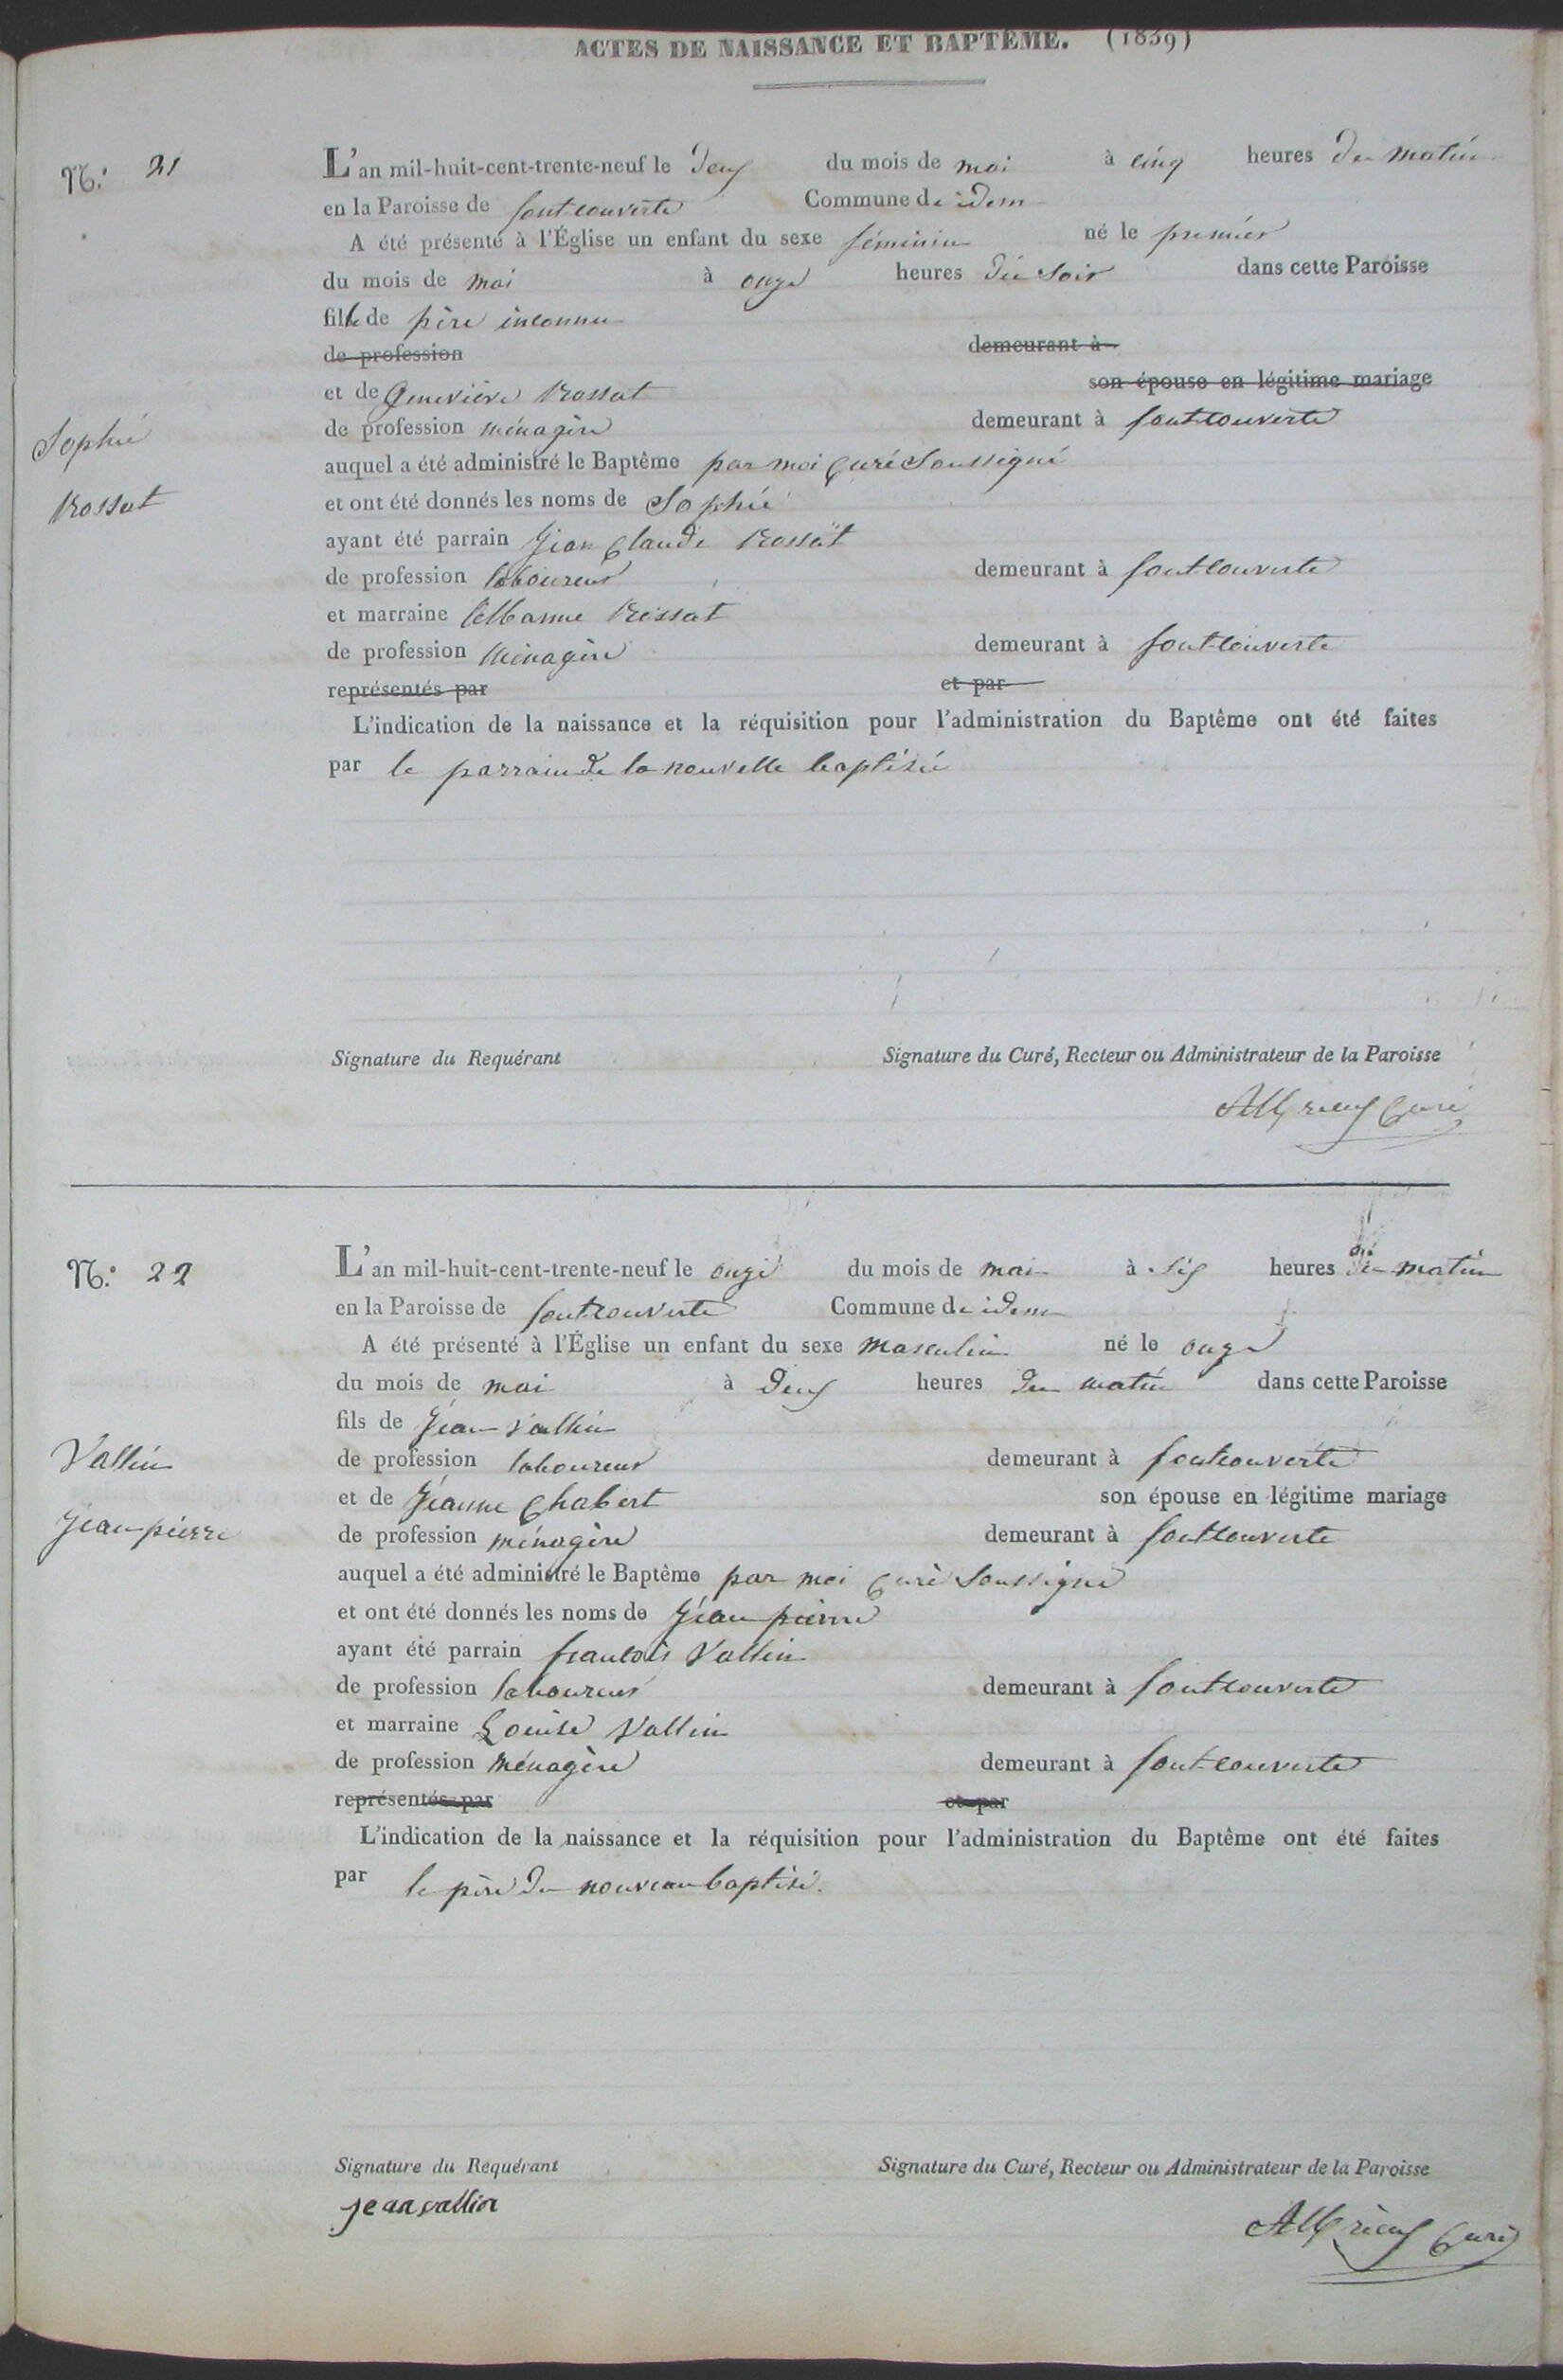 ACTES DE NAISSANCE ET BAPTÊME. (1839)
N.° 21
L'an mil-huit-cent-trente-neuf le deux du mois de mai à cinq heures du matin
en la Paroisse de fontcouverte Commune de idem
A été présenté à l'Église un enfant du sexe féminin né le premier
du mois de mai à onze heures du soir dans cette Paroisse
fille de père inconnu
de profession demeurant à
et de Geneviève Rossat son épouse en légitime mariage
de profession ménagère demeurant à fontcouverte
Sophie
auquel a été administré le Baptême par moi Curé Soussigné
Rossat
et ont été donnés les noms de Sophie
ayant été parrain Jean Claude Rossat
de profession laboureur demeurant à fontcouverte
et marraine Rossat
de profession ménagère demeurant à fontcouverte
représentés par et par
L'indication de la naissance et la réquisition pour l'administration du Baptême ont été faites
par le parrain de la nouvelle baptisée
Signature du Requérant Signature du Curé, Recteur ou Administrateur de la Paroisse
Curé
N.° 22
L'an mil-huit-cent-trente-neuf le onze du mois de mai à six heures du matin
en la Paroisse de fontcouverte Commune de idem
A été présenté à l'Église un enfant du sexe masculin né le onze
du mois de mai à deux heures du matin dans cette Paroisse
fils de Jean Vallin
Vallin
de profession laboureur demeurant à fontcouverte
et de Jeanne Chabert son épouse en légitime mariage
Jean pierre
de profession ménagère demeurant à fontcouverte
auquel a été administré le Baptême par moi Curé Soussigné
et ont été donnés les noms de Jean pierre
ayant été parrain francois Vallin
de profession laboureur demeurant à fontcouverte
et marraine Louise Vallin
de profession ménagère demeurant à fontcouverte
représentés par et par
L'indication de la naissance et la réquisition pour l'administration du Baptême ont été faites
par le père du nouveau baptisé.
Signature du Requérant Signature du Curé, Recteur ou Administrateur de la Paroisse
jean vallin
Curé